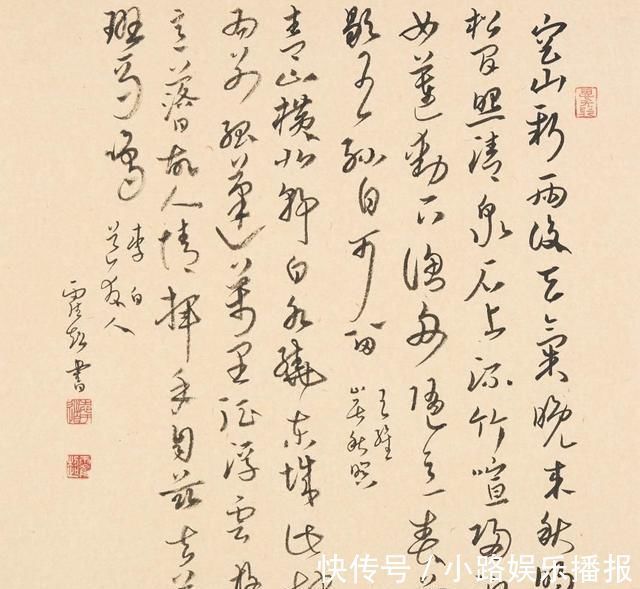 空山新雨后天气晚来秋明
松间照清泉石上流竹喧归
女莲动下渔舟随意春芳
歇王孙自可留
王维
山居秋暝
青山横北郭白水绕东城此地
为别孤蓬万里征浮云游
意落日故人情挥手自兹去萧
班马鸣
李白
送友人
霍起书
快传号/小路娱乐播报